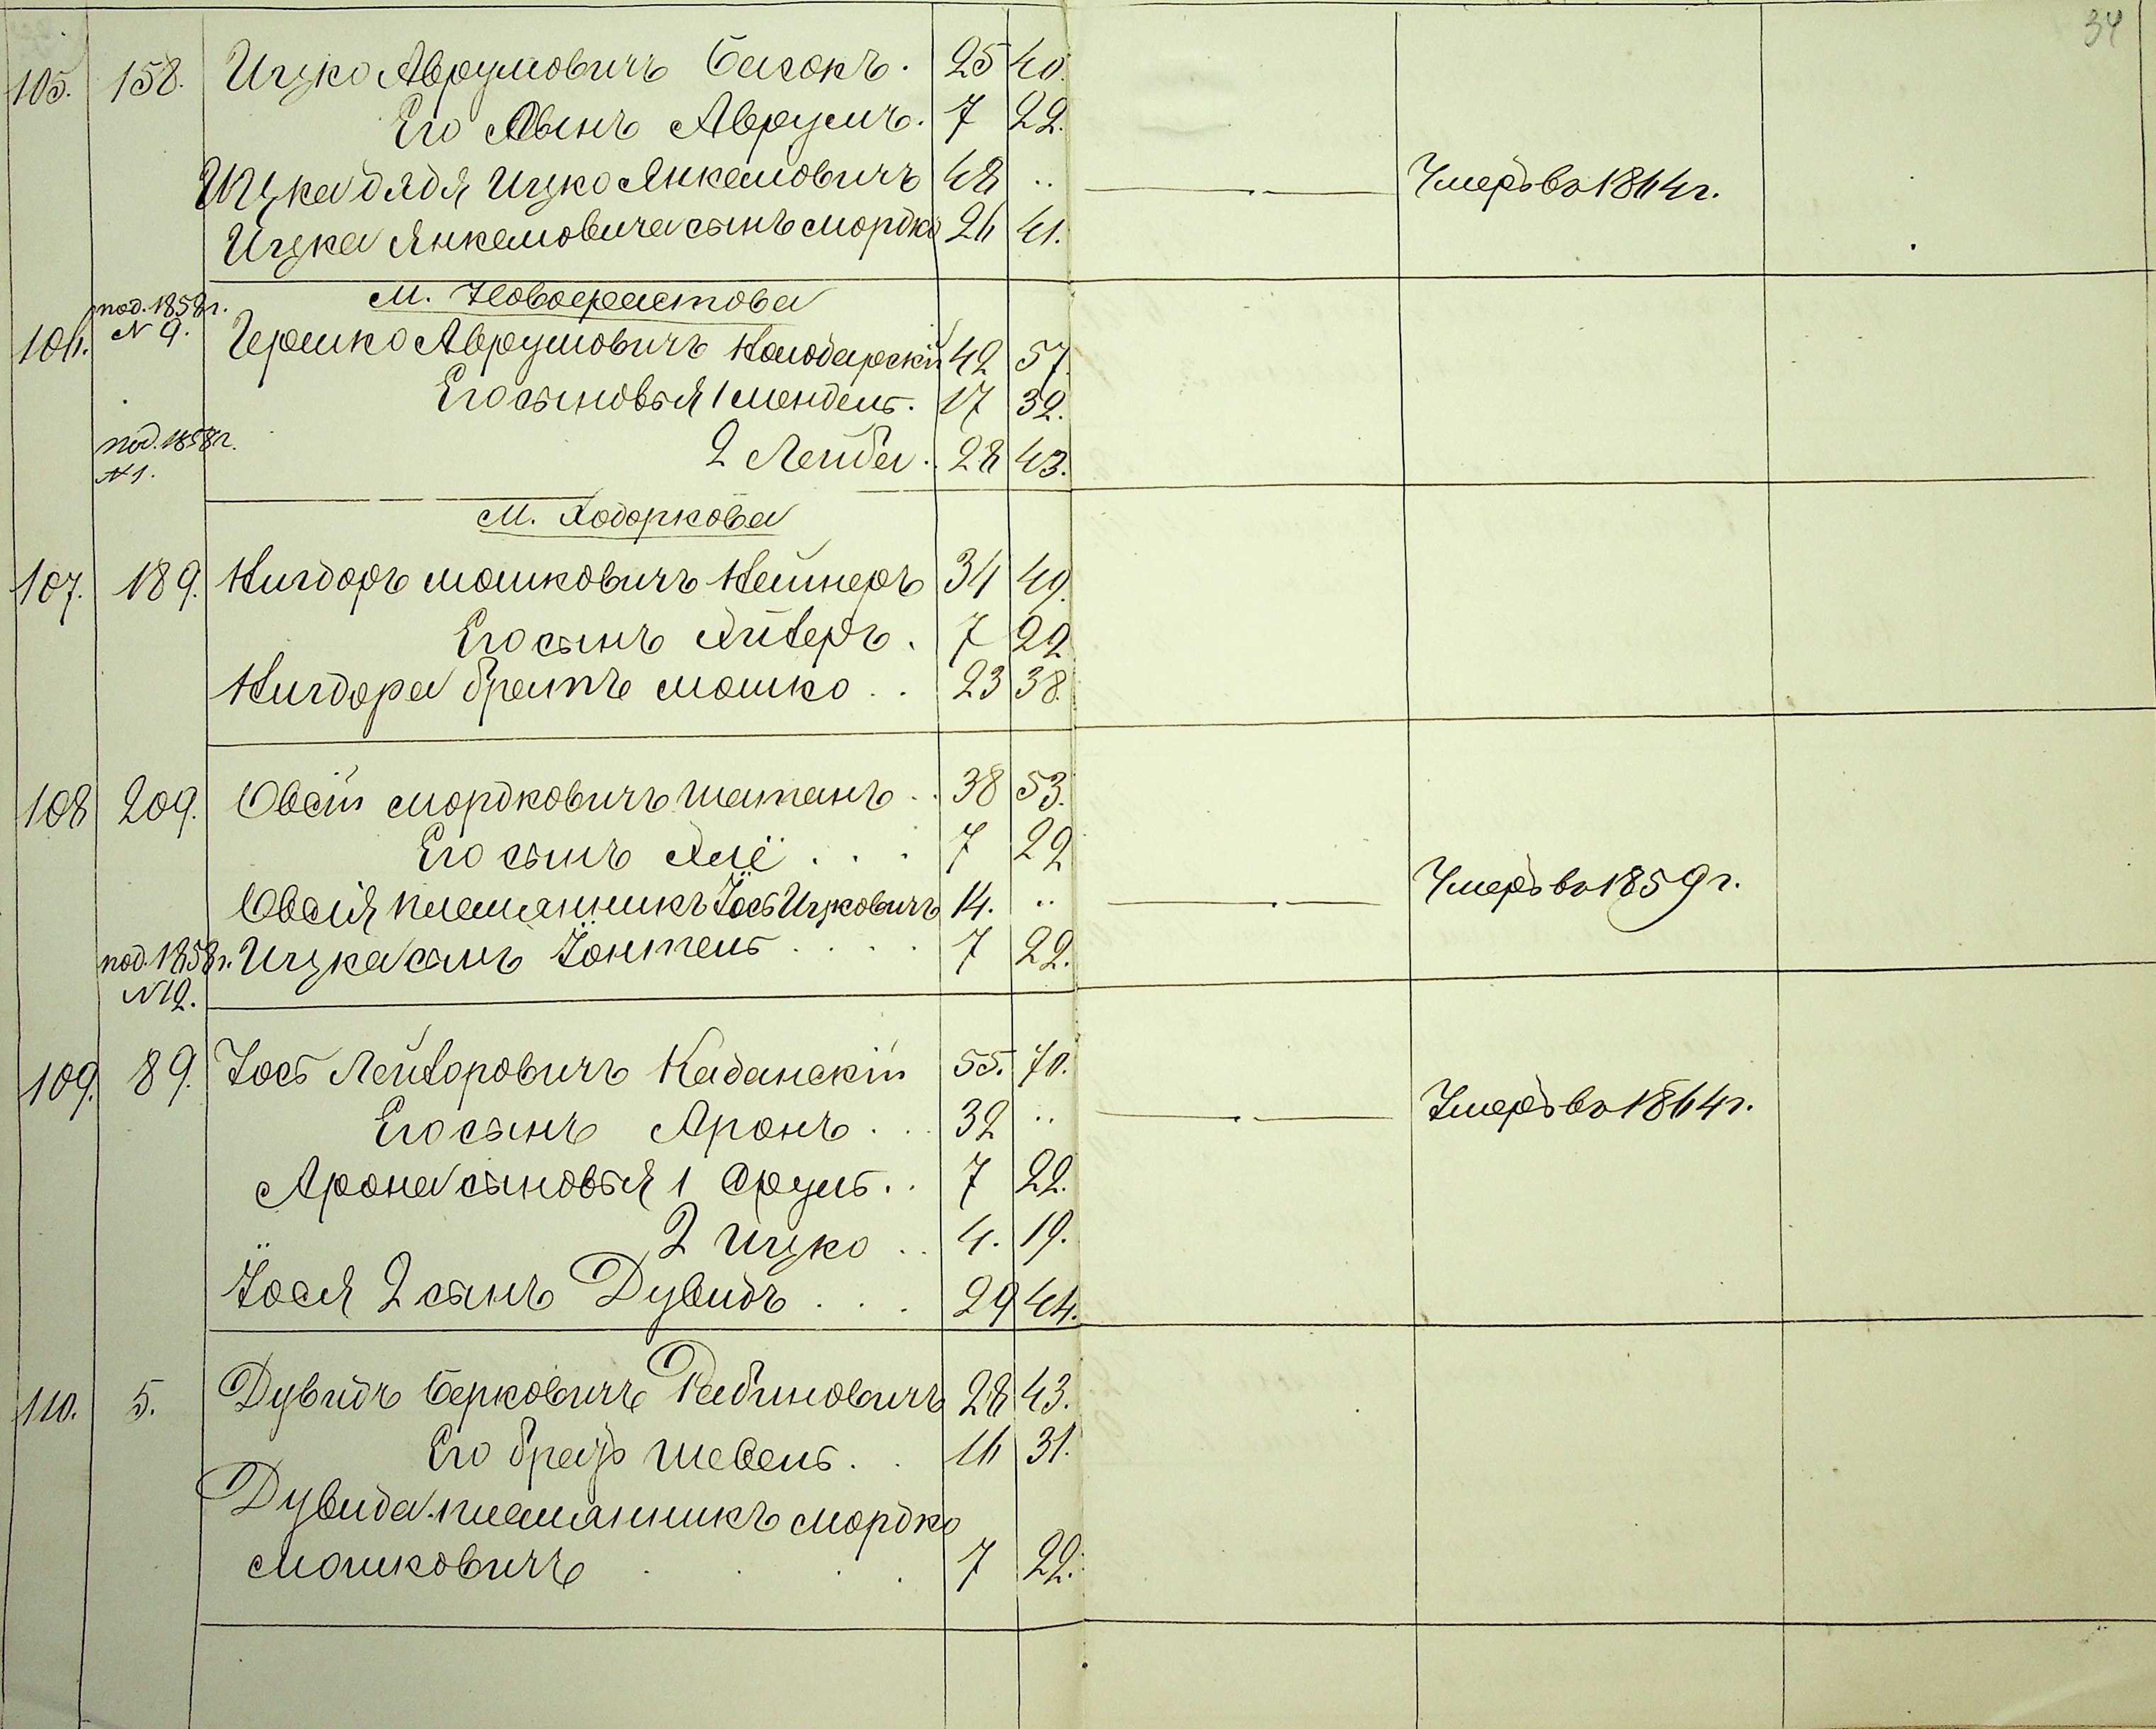 34
105. 158. Ицко Аврумовичъ Басокъ. 25 40.
Его Сынъ Аврумъ. 7 22.
Ицка дядя Ицко Янкелювичъ 48 .. Умеръ въ 1864 г.
Ицка Янкелювича сынъ Мордко 26 41.
М. Новофастова
106. под. 1858 г. № 9. Гершко Аврумовичъ Колодарскій 42 57.
Его сыновья 1 Мендель. 17 32.
под. 1858 г. № 1. 2 Лейба. 28 43.
М. Ходоркова
107. 189. Мошковичъ 34 49.
Его сынъ 7 22
братъ Мошко .. 23 38.
108 209. Овсій Мордковичъ Шатанъ .. 38 53.
Его сынъ ... 7 22
Овсія племянникъ Іось Ицковичъ 14. .. Умеръ въ 1859 г.
под. 1858 г. № 12. Ицка сынъ Іонтель .... 7 22.
109. 89. Іось Лейзоровичъ Каданскій 55. 70.
Его сынъ Аронъ ... 32 .. Умеръ въ 1864 г.
Арона сыновья 1 Сруль .. 7 22.
2 Ицко .. 4. 19.
Іося 2 сынъ Дувидъ ... 29 44.
110. 5. Дувидъ Берковичъ Рабиновичъ 28 43.
Его братъ Шевель .. 16 31.
Дувида племянникъ Мордко
Мошковичъ .... 7 22.